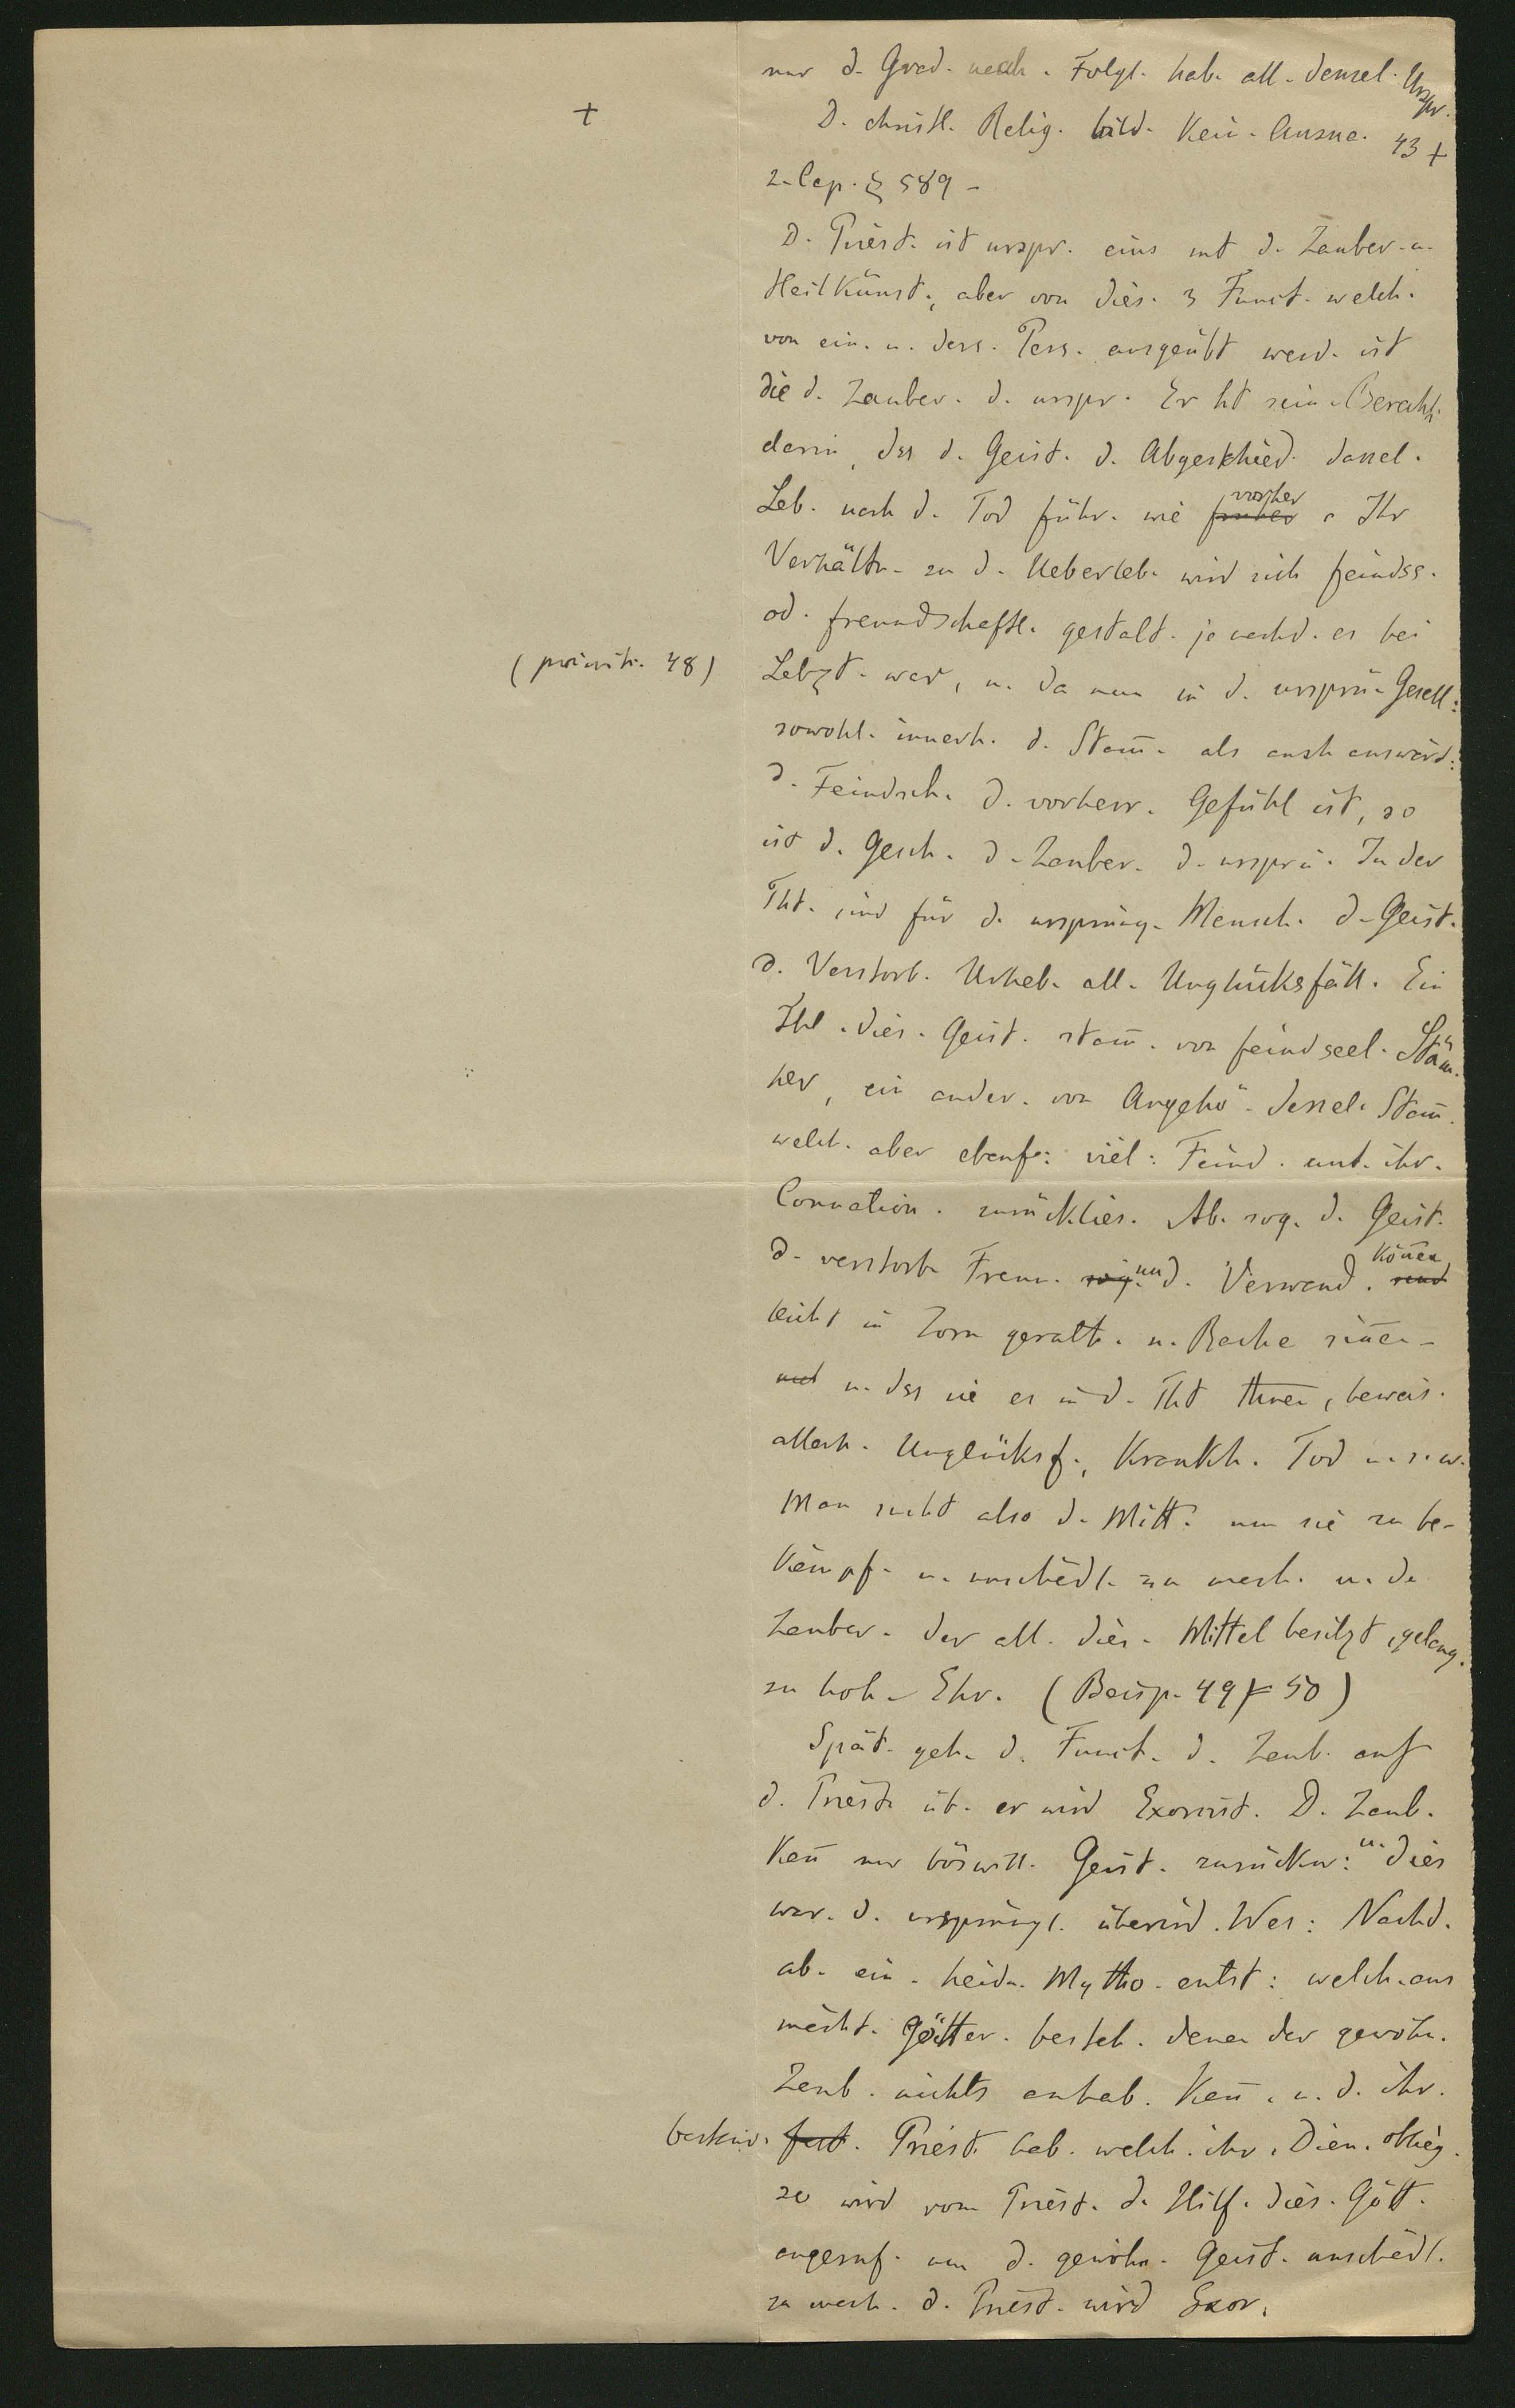 nur d. Grad. nach. Folgl. hab. all. densel. Urspr.
+
D. christl. Relig. bild. kein. Ausna. 43 +
2. Cap. § 589 -
D. Priest. ist urspr. eins mit d. Zauber. u.
Heilkünst., aber von dies. 3 Funct. welch.
von ein. u. ders. Pers. ausgeübt werd. ist
die d. Zauber. d. urspr. Er ht sein. Berecht.
darin, dss d. Geist. d. Abgeschied. dassel.
Leb. nach d. Tod führ. wie früher vorher. Ihr
Verhältn. zu d. Ueberleb. wird sich feindss.
od. freundschaftl. gestalt. je nachd. es bei
(primit. 48)
Lebzt. war, u. da nun in d. ursprü. Gesell:
sowohl. innerh. d. Stam̄. als auch auswärt:
d. Feindsch. d. vorherr. Gefühl ist, so
ist d. Gesch. d. Zauber. d. ursprü. In der
Tht. sind für d. ursprüng. Mensch. d. Geist.
d. Verstorb. Urheb. all. Unglücksfäll. Ein
Thl. dies. Geist. stam̄. von feindseel. Stäm̄.
her, ein ander. von Angehö. dessel. Stam̄.
welch. aber ebenf: viel: Feind. unt. ihr.
Connation. zurücklies. Ab. sog. d. Geist.
d. verstorb. Freun. sog. un d. Verwand. sind kön̄en
leicht in Zorn gerath. u. Rache sin̄en -
und u. dss sie es in d. Tht thuen, beweis.
allerh. Unglücksf., Krankh. Tod u. s. w.
Man sucht also d. Mitt. um sie zu be-
kämpf. u. unschädl. zu mach. u. d.
Zauber. der all. dies. Mittel besitzt, gelang.
zu hoh. Ehr. (Beisp. 49 + 50)
Spät. geh. d. Funct. d. Zaub. auf
d. Priest. üb. er wird Exorcist. D. Zaub.
kan̄ nur böswill. Geist. zurückw: u. dies
war. d. ursprüngl. überird. Wes: Nachd.
ab. ein. heidn. Mytho. entst: welch. aus
mächt. Götter. besteh. denen der gewöhn.
Zaub. nichts anhab. kan̄. u. d. ihr.
fest. Priest. hab. welch. ihr. Dien. oblieg.
so wird vom Priest. d. Hilf. dies. Gött.
angeruf. um d. gewöhn. Geist. unschädl.
zu mach. d. Priest. wird Exor.